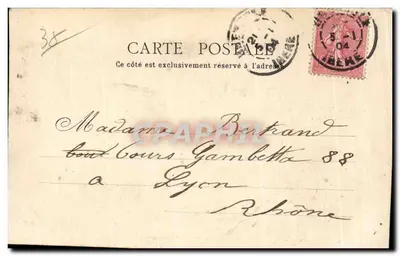 3f
CARTE POSTALE
Ce côté est exclusivement réservé à l'adresse
21
5 -1
04
ISERE
5 -1
04
ISERE
Madame Bertrand
Cours Gambetta 88
a Lyon
Rhône